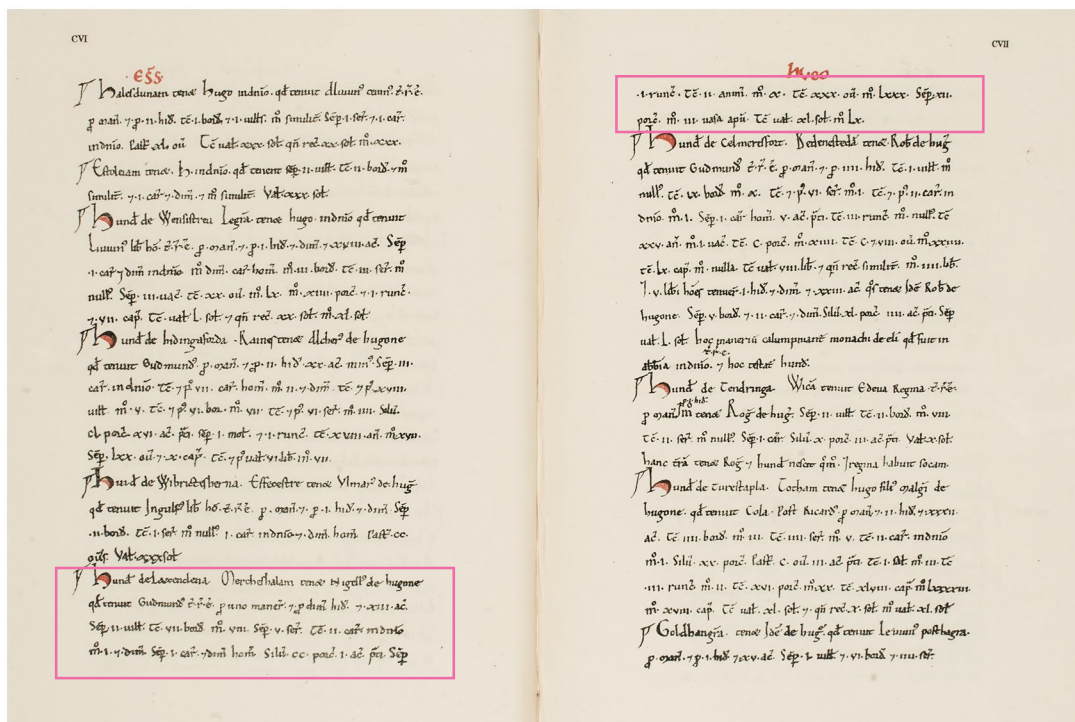 CVI
ESS.
Phalesdunam ten& hugo indnio. qđ tenuit Aluuin' temp̄. r̄. e.
ꝑ mañ. ⁊ ꝑ. ii. hiđ. Tc̄. i. borđ. ⁊ i. uilłs. m̊ similit̄. Sēp. i. ser̄. ⁊ i. car̄.
indnio. Past̄. xl. où Tc̄ uał xxx. soł. qñ rec̄. xx. soł. m̊. xxx.
Estoleiam ten&. h. indnio. qđ tenent sēp. ii. uilł. Tc̄. ii. borđ. ⁊ m̊
similit̄. ⁊. i. car̄. ⁊ dim̄. ⁊ m̊ similit̄. Vał. xxx. soł.
hund de Wensistreu Legrā ten& hugo indnio qđ tenuit
Liuuin' liƀ hō. t̄. r̄. e. ꝑ. mañ. ⁊ ꝑ. i. hiđ. ⁊. dim̄. ⁊. xviii. ac̄. Sēp
. i. car̄ ⁊ dim̄ indnio m̊ dim̄. car̄ hom̄. m̊. iii. borđ. Tc̄. ii. ser̄. m̊
null'. Sēp. iii. uac̄. Tc̄. xx. où. m̊. Lx. m̊. xiiii. porc̄. ⁊. i. runc̄.
⁊. vii. cap̄. Tc̄. uał L. soł ⁊ qñ rec̄. xx. soł. m̊. xl. soł.
hund de hidingaforda. Raines ten& Alcher' de hugone
qđ tenuit Gudmund'. ꝑ. mañ. ⁊ ꝑ. ii. hiđ. xx. ac̄. min'. Sēp. iii.
car̄. indnio. Tc̄. ⁊ p'. vii. car̄ hom̄. m̊. ii. ⁊ dim̄. Tc̄. ⁊ p'. xviii.
uilł. m̊. v. Tc̄. ⁊ p'. vi. bor. m̊. vii. Tc̄. ⁊ p'. vi. ser̄. m̊. iiii. Silū.
cl porc̄. xvi. ac̄. p̄ti. sēp. i. mol. ⁊. i. runc̄. Tc̄. xviii. añ. m̊. xvii.
Sēp. Lxx. où. ⁊. x. cap̄. Tc̄. ⁊ p' uał vi. liƀ. m̊. vii.
hund de Wibrictesherna. Effecestre ten& Vlmar' de hug̃
qđ tenuit Ingulf' liƀ hō. t̄. r̄. e. ꝑ. mañ. ⁊ ꝑ. i. hiđ. ⁊ dim̄. Sēp
. ii. borđ. Tc̄. i. ser̄ m̊ null'. i. car̄ indnio. ⁊. dim̄. hom̄. Past̄. cc.
ouiƀ. Vał. xxx soł
hund de Laxendena Mercheshalam ten& Nigell' de hugone
qđ tenuit Gudmund' t̄. r̄. e. ꝑ uno maner̄. ⁊ ꝑ dim̄ hiđ. ⁊. xiii. ac̄.
Sēp. ii. uilł. Tc̄. vii. borđ m̊. viii. Sēp. v. ser̄. Tc̄. ii. car̄. indnio
m̊. i. ⁊ dim̄. Sēp. i. car̄. ⁊ dim̄ hom̄. Silū. cc. porc̄. i. ac̄. p̄ti. Sēp
CVII
. i. runc̄. Tc̄. ii. anim̄. m̊. x. Tc̄. xxx. où. m̊. Lxxx. Sēp. xii.
porc̄. m̊. iii. uasa apiū. Tc̄ uał. xl. soł. m̊ Lx.
hund de Celmeresfort. Kedenestedā ten& Roƀ de hug̃
qđ tenuit Gudmund t̄. r̄. e. ꝑ. mañ. ⁊ ꝑ. iiii. hiđ. Tc̄. i. uilł. m̊
null'. Tc̄. ix. borđ m̊. x. Tc̄. ⁊ p'. vi. ser̄. m̊. i. Tc̄. ⁊ p'. ii. car̄. in
dnio. m̊. i. Sēp. i. car̄ hom̄. v. ac̄. p̄ti. Tc̄. iii. runc̄. m̊. null'. Tc̄
xxv. añ. m̊. i. uac̄. Tc̄. C. porc̄. m̊. xiiii. Tc̄. C. ⁊. viii. où. m̊. xxvii.
Tc̄. Lx. cap̄. m̊. nulla. Tc̄ uał. viii. liƀ. ⁊ qñ rec̄. similit̄. m̊. iiii. liƀ.
I. v. liƀi hōes tenuer̄. i. hiđ. ⁊ dim̄. ⁊ xxiii. ac̄. q̊s ten& Idē Roƀ de
hugone. Sēp. v. borđ. ⁊. ii. car̄. ⁊. dim̄. Silū. xl. porc̄ iiii. ac̄. p̄ti. Sēp
uał. L. soł hoc maneriū calumpniant̄ monachi de eli qđ fuit in
t̄. r̄. e.
abbia indnio. ⁊ hoc testat̄ hund.
hund de Tendringa. Wicā tenuit Edeua Regina t̄. r̄. e.
ꝑ mañ m̊ ten& Roḡ de hug̃. Sēp. ii. uilł Tc̄. ii. borđ. m̊. viii.
Tc̄. ii. ser̄. m̊ null'. Sēp. i. car̄. Silū. x. porc̄ iii. ac̄. p̄ti. Vał. x. soł.
hanc t̄rā ten& Roḡ ⁊ hund nescit q̊m̊. I regina habuit socam.
hund de Turestapla. Tocham ten& hugo fili' malgi de
hugone. qđ tenuit Cola. Post Ricard'. ꝑ mañ. ⁊. ii. hiđ. ⁊ Lxxxii.
ac̄. Tc̄. iiii. borđ. m̊. iii. Tc̄. iiii. ser̄. m̊. v. Tc̄. ii. car̄ indnio
m̊. i. Silū. xx. porc̄. Past̄. C. où. iii. ac̄. p̄ti. Tc̄. i. sał. m̊. iii. Tc̄
iii. runc̄. m̊. ii. Tc̄. xvi. porc̄. m̊. xx. Tc̄. xlviii. cap̄. m̊ Lxxxviii.
m̊. xviii. cap̄. Tc̄ uał. xl. soł. ⁊ qñ rec̄. x. soł. m̊ uał. xl. soł
Goldhangrā. ten& Idē de hug̃. qđ tenuit Leuuin' post hagra.
ꝑ. mañ. ⁊ ꝑ. i. hiđ. ⁊ xv. ac̄. Sēp. i. uilł. ⁊ vi. borđ ⁊. iiii. ser̄.